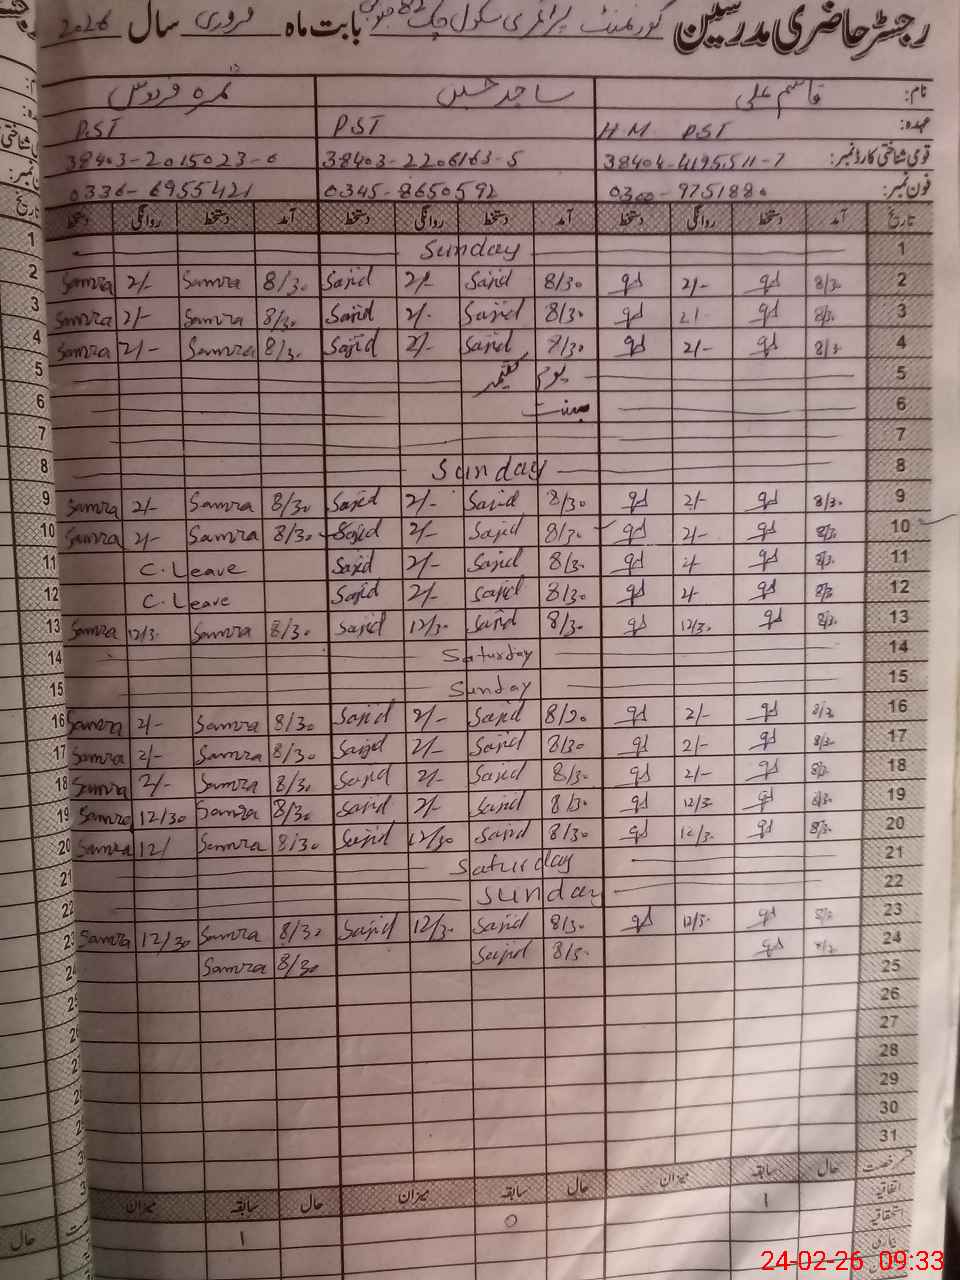 رجسٹر حاضری مدرسین گورنمنٹ پرائمری سکول چک 82 بابت ماہ فروری سال 2026
نام: قاسم علی ساجد حسین ثمرہ فردوس
عہدہ: HM PST P.ST P.ST
قومی شناختی کارڈ نمبر: 38404-4195511-7 38403-2206163-5 38403-2015023-6
فون نمبر: 0300-9751880 0345-8650592 0336-6955421
تاریخ آمد دستخط روانگی دستخط آمد دستخط روانگی دستخط آمد دستخط روانگی دستخط
1 Sunday
2 8/30 qd 2/- qd 8/30 Sajid 2/- Sajid 8/30 Samra 2/- Samra
3 8/30 qd 2/- qd 8/30 Sajid 2/- Sajid 8/30 Samra 2/- Samra
4 8/30 qd 2/- qd 8/30 Sajid 2/- Sajid 8/30 Samra 2/- Samra
5 یوم کشمیر
6
7
8 Sunday
9 8/30 qd 2/- qd 8/30 Sajid 2/- Sajid 8/30 Samra 2/- Samra
10 8/30 qd 2/- qd 8/30 Sajid 2/- Sajid 8/30 Samra 2/- Samra
11 8/30 qd 2/- qd 8/30 Sajid 2/- Sajid C. Leave
12 8/30 qd 2/- qd 8/30 Sajid 2/- Sajid C. Leave
13 8/30 qd 12/30 qd 8/30 Sajid 12/30 Sajid 8/30 Samra 12/30 Samra
14 Saturday
15 Sunday
16 8/30 qd 2/- qd 8/30 Sajid 2/- Sajid 8/30 Samra 2/- Samra
17 8/30 qd 2/- qd 8/30 Sajid 2/- Sajid 8/30 Samra 2/- Samra
18 8/30 qd 2/- qd 8/30 Sajid 2/- Sajid 8/30 Samra 2/- Samra
19 8/30 qd 12/30 qd 8/30 Sajid 2/- Sajid 8/30 Samra 12/30 Samra
20 8/30 qd 12/30 qd 8/30 Sajid 12/30 Sajid 8/30 Samra 12/ Samra
21 Saturday
22 Sunday
23 8/30 qd 12/30 qd 8/30 Sajid 12/30 Sajid 8/30 Samra 12/30 Samra
24 qd Sajid 8/30 Samra
25
26
27
28
29
30
31
قسم رخصت حال سابقہ میزان حال سابقہ میزان حال سابقہ میزان
اتفاقیہ 1 0 1
استحقاقیہ
بیماری
24-02-26 09:33